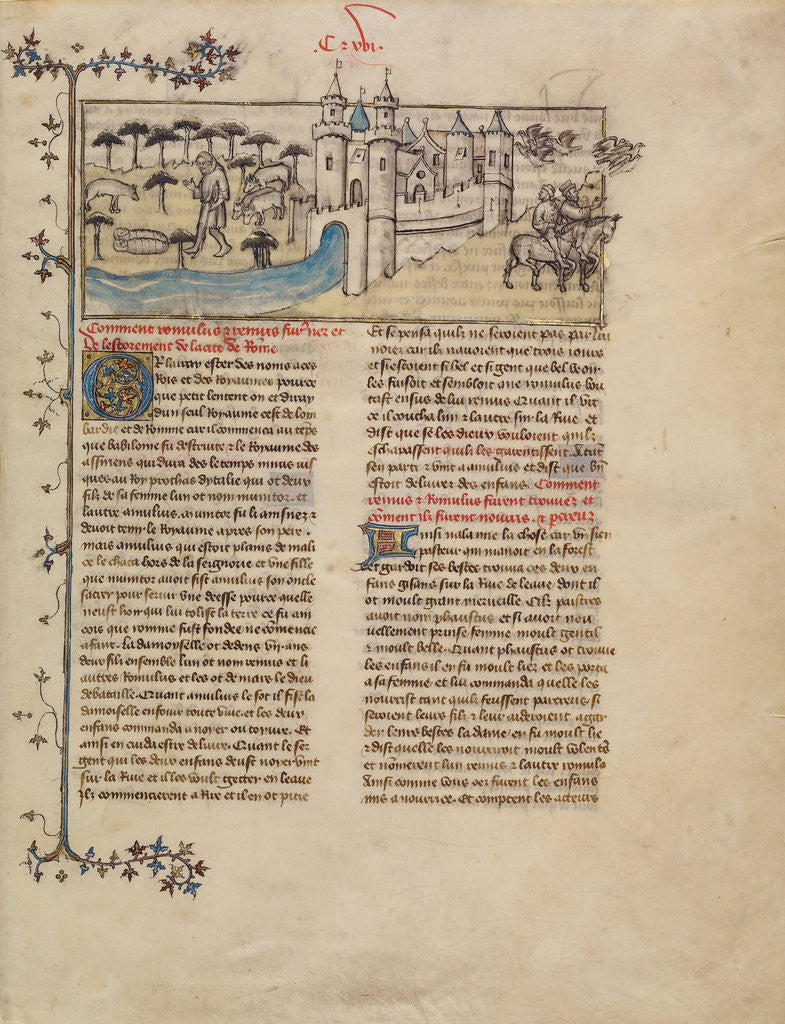 .C xvi.
Comment romulus et remus fur' nez et
de lestorement de la cite de Rome
Or lairay ester des noms a ces
Rois et des Royaumes pource
que petit lentent on et diray
dun seul Royaume cest de lom
bardie et de Romme car il commenca au teps
que babiloine fu destruite et le Royaume des
assiriens qui dura des le temps ninus
ques au Roy prochas dytalie qui ot deux
filz de sa femme lun ot nom numitor. et
lautre amulius. numitor fu li aisnez et
devoit tenir le Royaume apres son pere.
mais amulius qui estoit plains de mali
ce le chaca hors de la seignorie et une fille
que numitor avoit fist amulius son oncle
sacrer pour servir une deesse pource quelle
neust hoir qui lui tolist la terre ce fu ain
cois que romme fust fondee ne commencie
a faire. La damoyselle ot dedens vij. ans
deux filz ensemble lun ot nom remus et li
autres Romulus et les ot de mars le dieu
de bataille. Quant amulius le sot il fist la
damoiselle enfouir toute vive. et les deux
enfans commanda a noyer ou torvre. Et
ainsi en cuida estre delivre. Quant le ser
gent qui les deux enfans deust noyer vint
sur la Rive et il les voult gecter en leaue
Ilz commencierent a Rire et il en ot pitie
Et se pensa quilz ne seroient pas par lui
noiez car ilz navoient que trois jours
et si estoient si bel et si gent que bel veoir
les faisoit et sembloit que romulus bou
tast ensus de lui remus Quant il vit
ce il coucha lun et lautre sur la Rive et
dist que se les dieux vouloient quilz
eschapassent quilz les garentissent. Atant
sen parti et vint a amulius et dist que bn
estoit delivre des enfans. Comment
remus et Romulus furent trouvez et
coment ilz furent nouris. et pereuz
Ainsi na la une la chose car un sien
pasteur qui manoit en la forest
et gardoit ses bestes trouva ces deux en
fans gisans sur la Rive de leaue dont il
ot moult grant merveille Cilz pastres
avoit nom phaustus et si avoit nou
vellement prinse femme moult gentil
et moult belle. Quant phaustus ot trouve
les enfans il en fu moult liez et les porta
a sa femme et lui commanda quelle les
nourrist tant quilz feussent parcreus si
seroient leurs filz et leur aideroient a gar
der leurs bestes la dame en fu moult lie
et dist quelle les nourriroit moult volentiers
et nommerent lun remus et lautre romula
Ainsi comme vous oez furent les enfans
mis a nourrice. Et comptent les acteurs